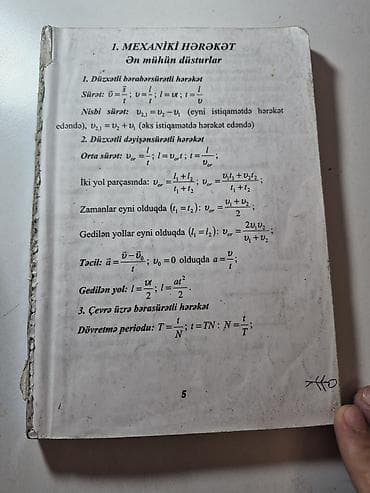 1. MEXANİKİ HƏRƏKƏT
Ən mühün düsturlar
1. Düzxətli bərabərsürətli hərəkət
Sürət: υ⃗ = s⃗/t; υ = l/t; l = υt; t = l/υ
Nisbi sürət: υ₂,₁ = υ₂ − υ₁ (eyni istiqamətdə hərəkət
edəndə), υ₂,₁ = υ₂ + υ₁ (əks istiqamətdə hərəkət edəndə)
2. Düzxətli dəyişənsürətli hərəkət
Orta sürət: υₒᵣ = l/t; l = υₒᵣt; t = l/υₒᵣ;
İki yol parçasında: υₒᵣ = (l₁ + l₂)/(t₁ + t₂); υₒᵣ = (υ₁t₁ + υ₂t₂)/(t₁ + t₂);
Zamanlar eyni olduqda (t₁ = t₂): υₒᵣ = (υ₁ + υ₂)/2;
Gedilən yollar eyni olduqda (l₁ = l₂): υₒᵣ = 2υ₁υ₂/(υ₁ + υ₂);
Təcil: a⃗ = (υ⃗ − υ⃗₀)/t; υ₀ = 0 olduqda a = υ/t;
Gedilən yol: l = υt/2; l = at²/2.
3. Çevrə üzrə bərasürətli hərəkət
Dövretmə periodu: T = t/N; t = TN; N = t/T;
5